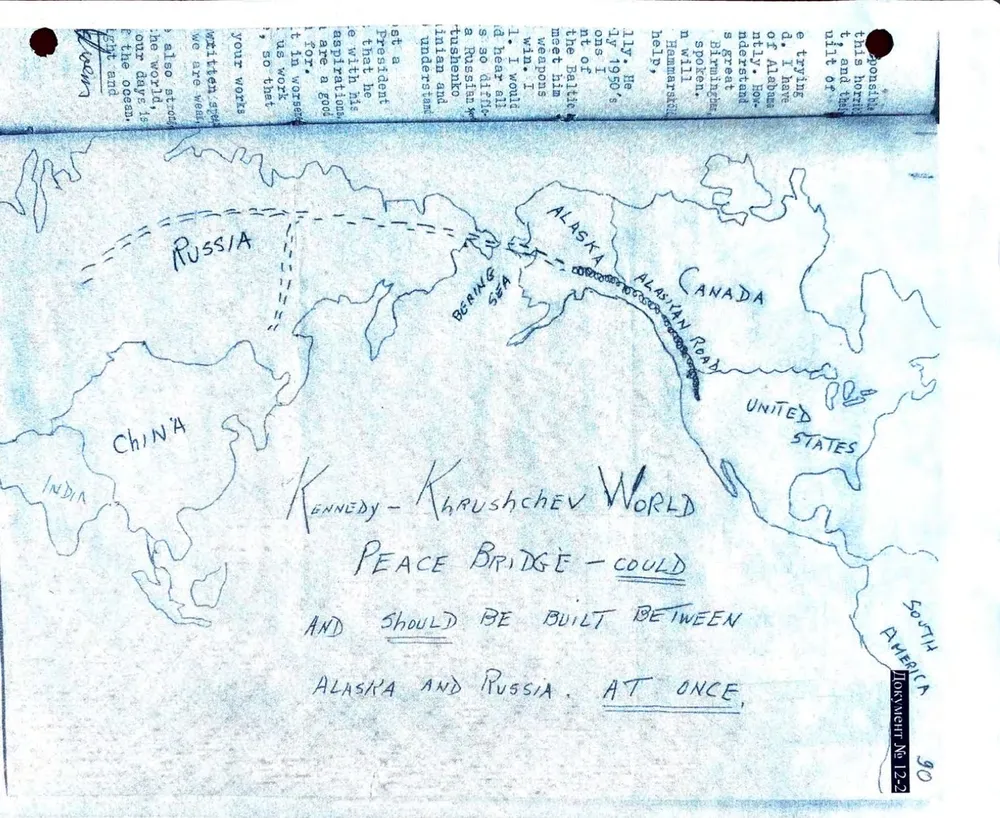 ponsible
this horri
t, and the
uilt of
e trying
d. I have
of Alabama
ntly. How-
nderstand
s great
Birmingham
spoken.
n will
Hammarskj
help,
lly. He
ly 1950's
ons I
nt of
the Baltic
meet him
weapons
win. I
l. I would
nd hear all
s so diffic-
a Russian
tushenko
inian and
understand
st a
President
that he
e with his
aspirations
are a good
for.
t in worse
us work
, so that
your works
written,
we are weak
, also strong
he world.
our days, is
f the ocean.
ght and
RUSSIA
BERING
SEA
ALASKA
ALASKAN ROAD
CANADA
UNITED
STATES
CHINA
INDIA
SOUTH
AMERICA
KENNEDY – KHRUSHCHEV WORLD
PEACE BRIDGE – COULD
AND SHOULD BE BUILT BETWEEN
ALASKA AND RUSSIA. AT ONCE.
Документ № 12-2
90